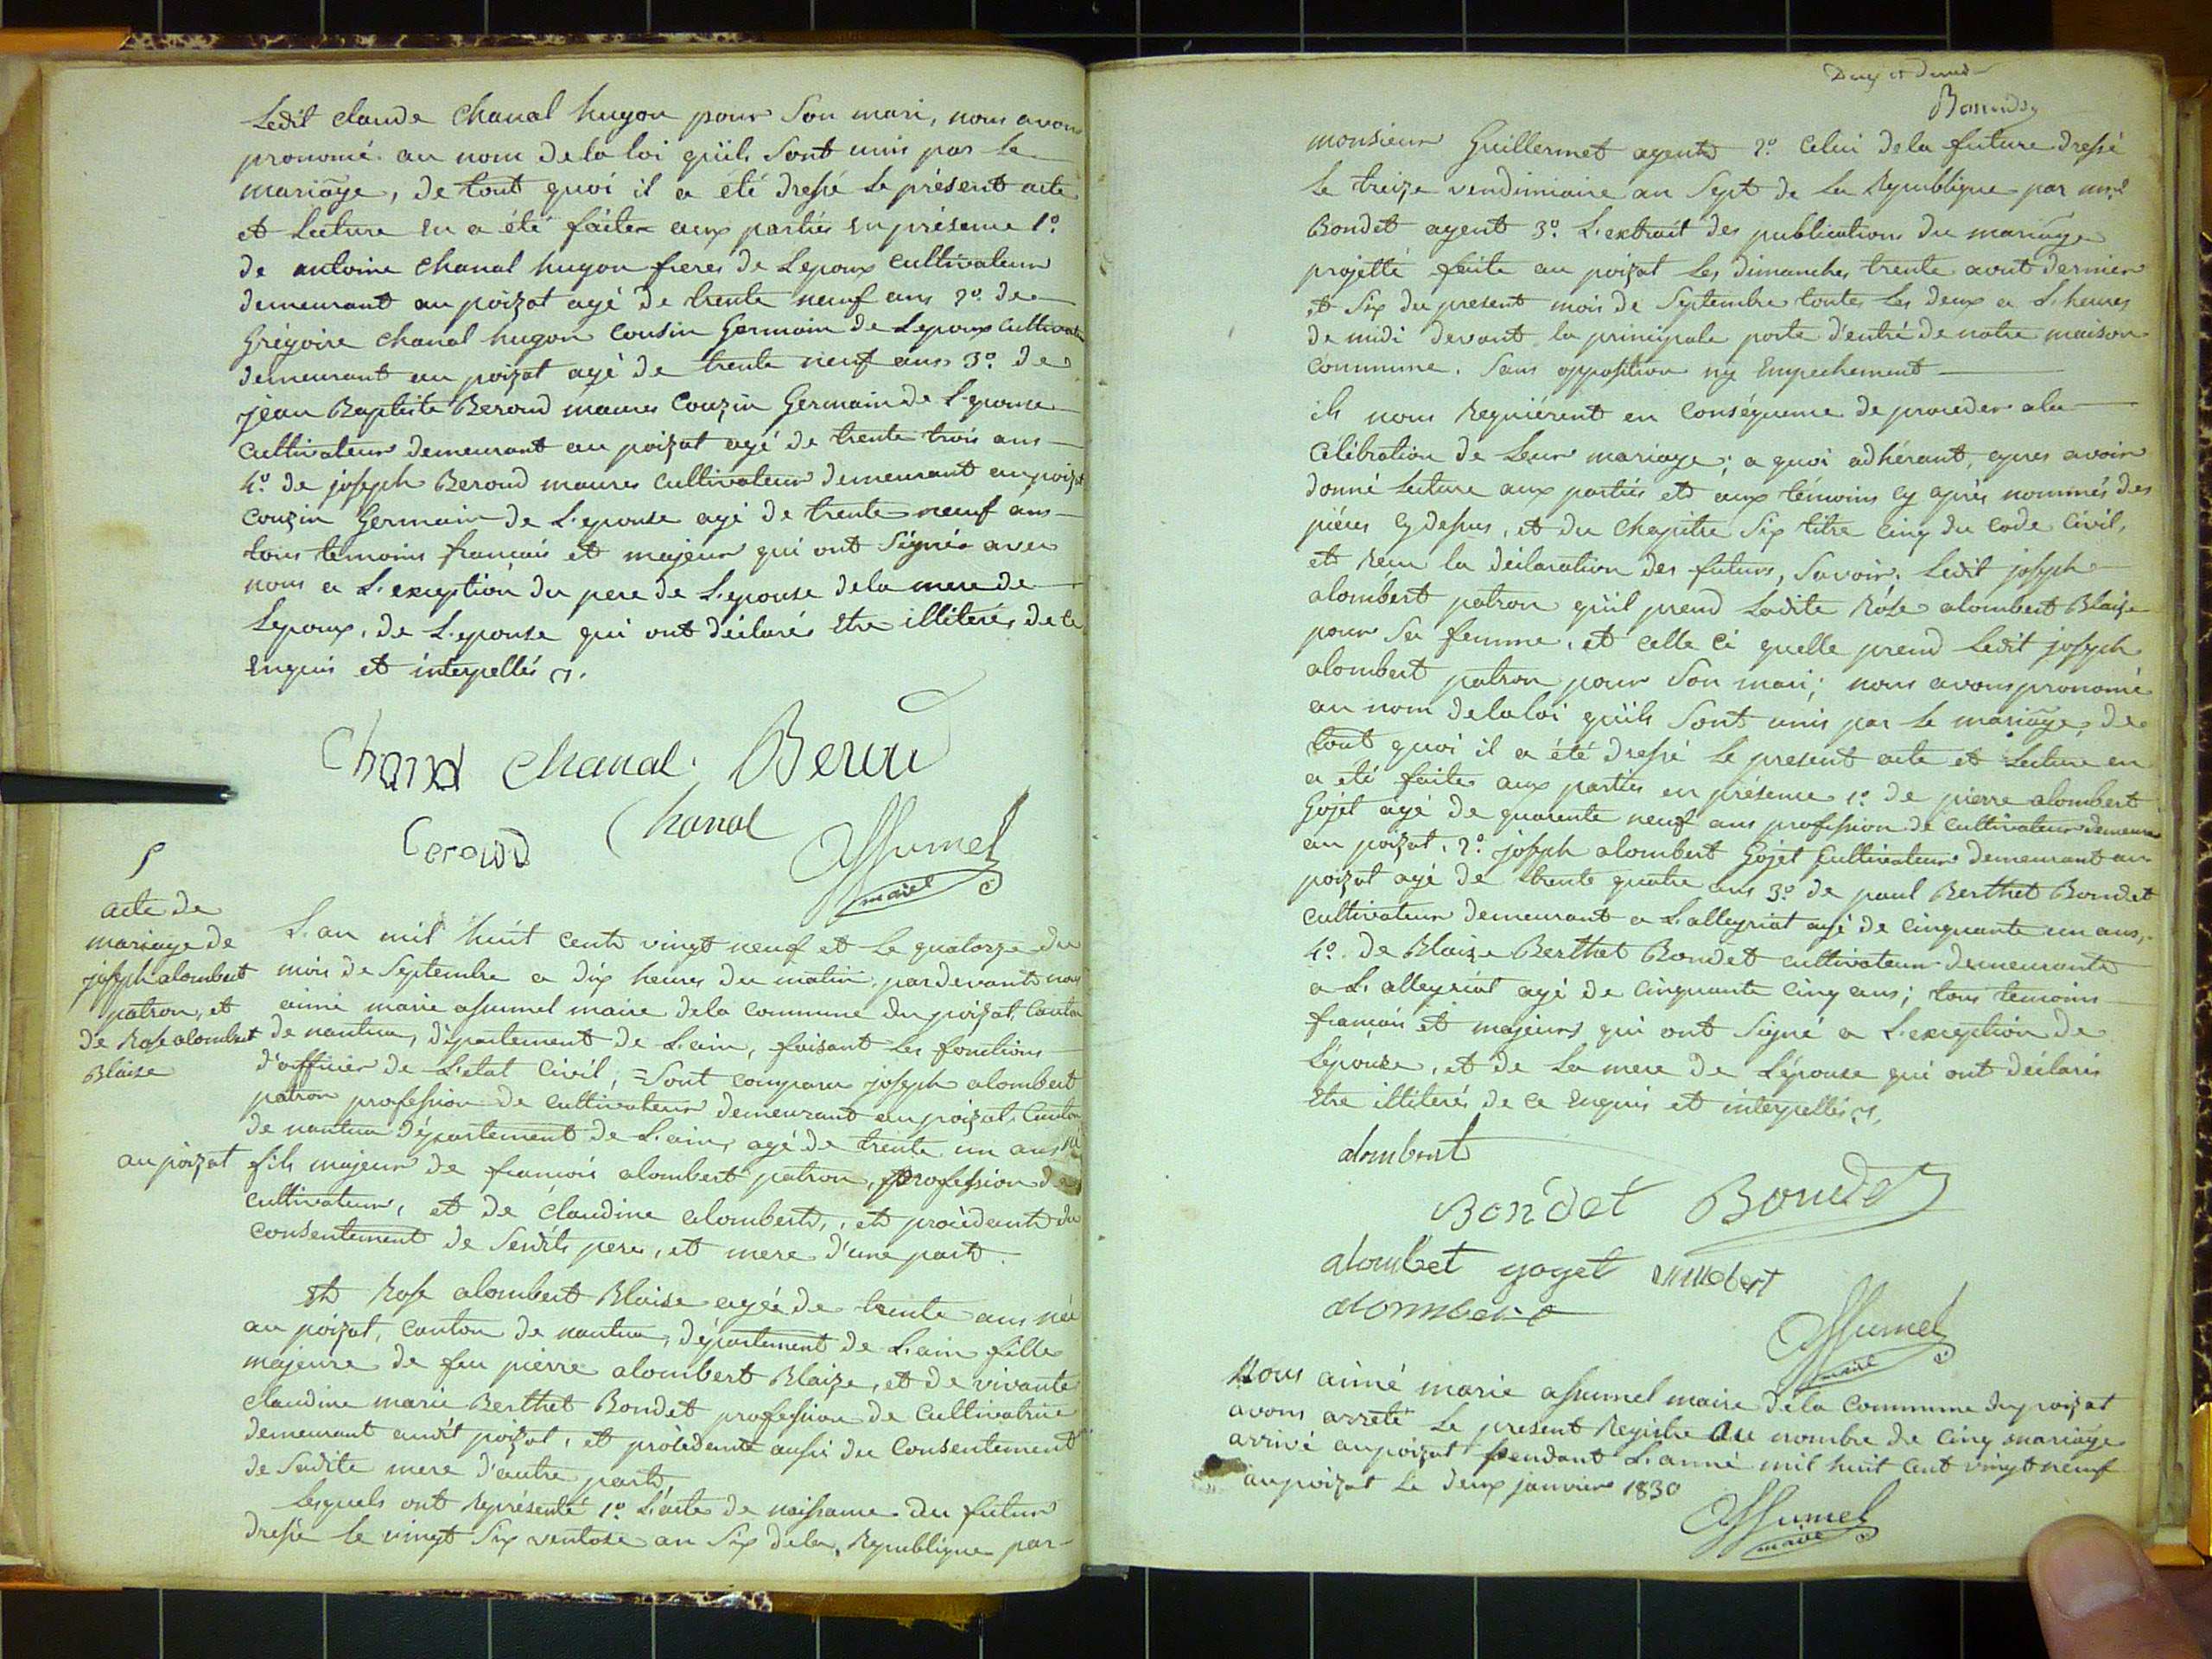 Ledit claude Chanal hugon pour Son mari, nous avons
prononcé au nom de la loi quils Sont unis par le
mariage, de tout quoi il a été dressé le présent acte
et Lecture en a été faite aux parties en présence 1º
de antoine Chanal hugon freres de Lepoux cultivateur
demeurant au poizat agé de trente neuf ans 2º de
Grégoire Chanal hugon Cousin Germain de Lepoux cultivateur
demeurant au poizat agé de trente neuf ans 3º de
jean Baptiste Beroud maures Couzin Germain de Lepouse
cultivateur demeurant au poizat agé de trente trois ans
4º de joseph Beroud maures cultivateur demeurant au poizat
Couzin Germain de L'epouse agé de trente neuf ans
tous temoins francais et majeur qui ont Signé avec
nous a L'exception du pere de L'epouse de la mere de
Lepoux, de L'epouse qui ont déclarés Etre illiterés de ce
Enquis et interpellés
Chanal Chanal Beroud
Chanal
Beroud
Assumel
maire
5
acte de
mariage de
joseph alombert
patron, et
de Rose alombert
Blaise
L'an mil huit cents vingt neuf et le quatorze du
mois de Septembre a dix heures du matin, pardevant nous
aimé marie assumel maire de la commune du poizat Canton
de nantua, département de L'ain, faisant les fonctions
d'officier de L'etat Civil, = Sont comparu joseph alombert
patron profession de cultivateur demeurant au poizat, Canton
de nantua département de L'ain, agé de trente un ans né
au poizat fils majeur de francois alombert patron, profession de
cultivateur, et de Claudine alombert, et procédant du
consentement de Sesdits pere, et mere d'une part.
Et Rose alombert Blaise agée de trente ans née
au poizat, canton de nantua, département de L'ain fille
majeure de feu pierre alombert Blaize, et de vivante
Claudine marie Berthet Bondet profession de Cultivatrice
demeurant audit poizat, et procédante aussi du Consentement
de Sadite mere d'autre part,
Lesquels ont représenté 1º L'acte de naissance du futur
dressé le vingt Six ventose an Six de la République par
Bonndoy
monsieur Guillermet agent 2º Celui de la future dressé
Le treize vendimiaire an Sept de la Republique par
Bondet agent 3º L'extrait des publications du mariage
projetté faite au poizat Les dimanches trente aout dernier
et Six du present mois de Septembre toutes les deux a L'heures
de midi devant la principale porte d'entré de notre maison
commune. Sans opposition ny Empechement
ils nous Requiérent en conséquence de proceder a la
Célébration de Leur mariage; a quoi adhérant, apres avoir
donné lecture aux parties et aux témoins cy après nommés des
piéces cy dessus, et du Chapitre Six titre cinq du code Civil,
et Recu la déclaration des futurs, Savoir. Ledit joseph
alombért patron qu'il prend Ladite Róse alombert Blaize
pour Sa femme, et celle Ci quelle prend Ledit joseph
alombert patron pour Son mari; nous avons prononcé
au nom de la loi quils Sont unis par le mariage, de
tout quoi il a été dressé le present acte et Lecture en
a été faite aux parties en présence 1º de pierre alombert
Gojet agé de quarente neuf ans profession de cultivateur demeurant
au poizat. 2º joseph alombert Gojet Cultivateur demeurant au
poizat agé de trente quatre ans 3º de paul Berthet Bondet
cultivateur demeurant a L'alleyriat agé de cinquante un ans,
4º de Blaize Berthet Bondet cultivateur demeurante
a L'alleyriat agé de cinquante cinq ans; tous temoins
francais et majeurs qui ont Signé a L'exception de
L'épouse, et de La mere de L'épouse qui ont déclarés
Etre illiterés de ce Enquis et interpellés
alombert
Bondet Bondet
alombet goget
alombert
Assumel
maire
Nous aimé marie assumel maire de la Commune du poizat
avons arreté Le present Registre au nombre de cinq mariage
arrivé au poizat pendant L'anné mil huit cent vingt neuf
au poizat Le deux janvier 1830
Assumel
maire